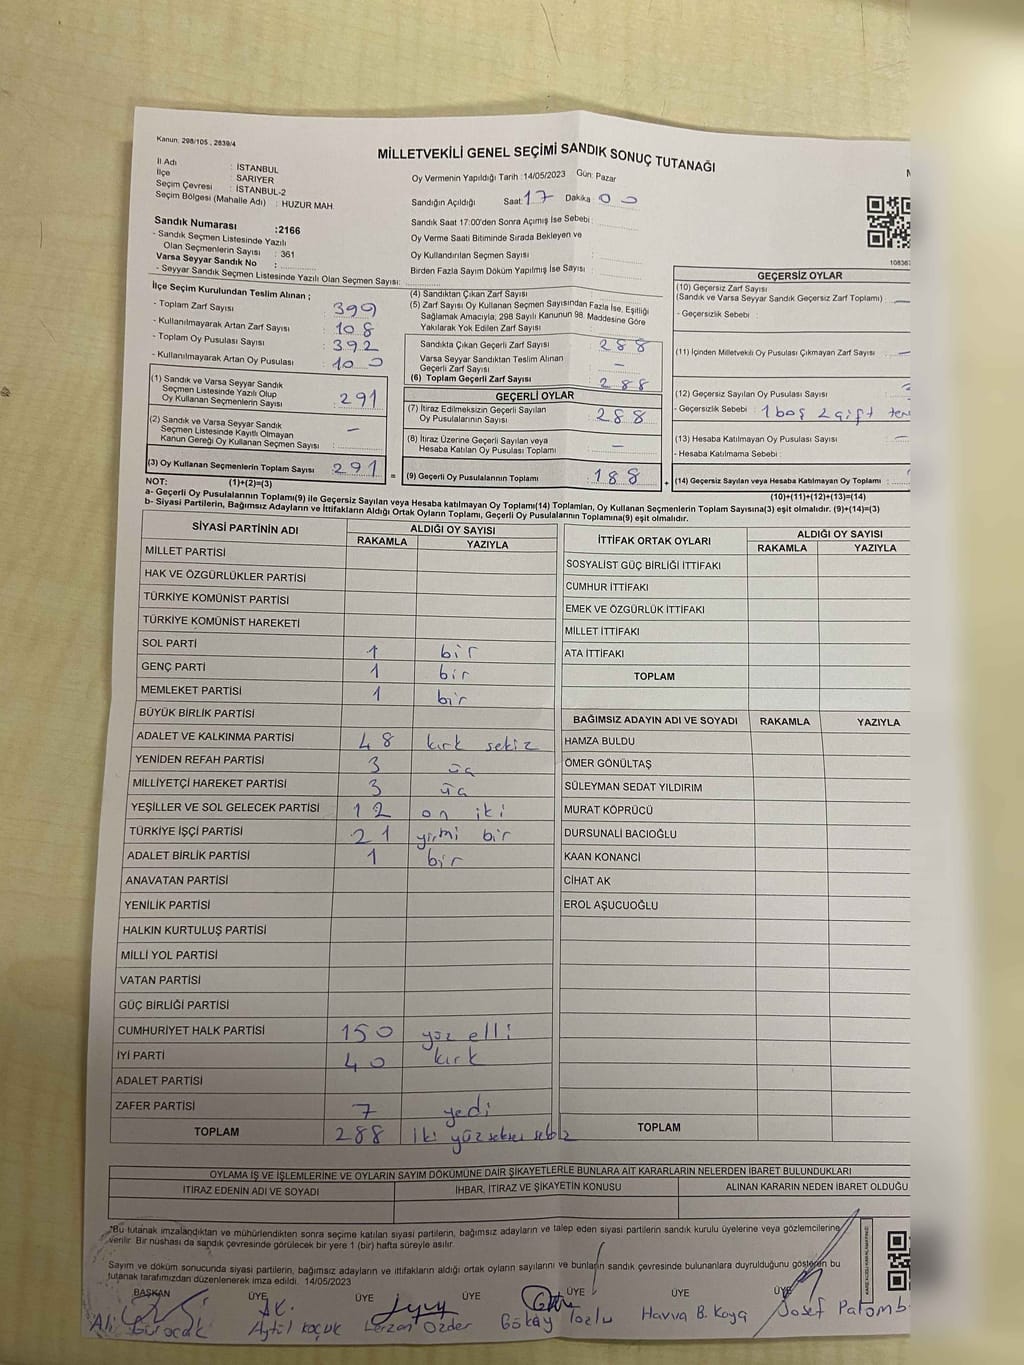 Kanun: 298/105 , 2839/4
MİLLETVEKİLİ GENEL SEÇİMİ SANDIK SONUÇ TUTANAĞI
İl Adı : İSTANBUL
İlçe : SARIYER
Seçim Çevresi : İSTANBUL-2
Seçim Bölgesi (Mahalle Adı) : HUZUR MAH.
Oy Vermenin Yapıldığı Tarih :14/05/2023 Gün: Pazar
Sandığın Açıldığı Saat: 17 Dakika 00
Sandık Saat 17:00'den Sonra Açımış İse Sebebi :
Oy Verme Saati Bitiminde Sırada Bekleyen ve
Oy Kullandırılan Seçmen Sayısı :
Birden Fazla Sayım Döküm Yapılmış İse Sayısı :
Sandık Numarası :2166
- Sandık Seçmen Listesinde Yazılı
Olan Seçmenlerin Sayısı : 361
Varsa Seyyar Sandık No :
- Seyyar Sandık Seçmen Listesinde Yazılı Olan Seçmen Sayısı:
İlçe Seçim Kurulundan Teslim Alınan ;
- Toplam Zarf Sayısı : 399
- Kullanılmayarak Artan Zarf Sayısı : 108
- Toplam Oy Pusulası Sayısı : 392
- Kullanılmayarak Artan Oy Pusulası : 100
(1) Sandık ve Varsa Seyyar Sandık
Seçmen Listesinde Yazılı Olup
Oy Kullanan Seçmenlerin Sayısı : 291
(2) Sandık ve Varsa Seyyar Sandık
Seçmen Listesinde Kayıtlı Olmayan
Kanun Gereği Oy Kullanan Seçmen Sayısı : -
(3) Oy Kullanan Seçmenlerin Toplam Sayısı : 291
(4) Sandıktan Çıkan Zarf Sayısı :
(5) Zarf Sayısı Oy Kullanan Seçmen Sayısından Fazla İse, Eşitliği
Sağlamak Amacıyla; 298 Sayılı Kanunun 98. Maddesine Göre
Yakılarak Yok Edilen Zarf Sayısı :
Sandıkta Çıkan Geçerli Zarf Sayısı : 288
Varsa Seyyar Sandıktan Teslim Alınan
Geçerli Zarf Sayısı : -
(6) Toplam Geçerli Zarf Sayısı : 288
GEÇERLİ OYLAR
(7) İtiraz Edilmeksizin Geçerli Sayılan
Oy Pusulalarının Sayısı : 288
(8) İtiraz Üzerine Geçerli Sayılan veya
Hesaba Katılan Oy Pusulası Toplamı : -
(9) Geçerli Oy Pusulalarının Toplamı : 188
GEÇERSİZ OYLAR
(10) Geçersiz Zarf Sayısı
(Sandık ve Varsa Seyyar Sandık Geçersiz Zarf Toplamı) :
- Geçersizlik Sebebi :
(11) İçinden Milletvekili Oy Pusulası Çıkmayan Zarf Sayısı : -
(12) Geçersiz Sayılan Oy Pusulası Sayısı :
- Geçersizlik Sebebi : 1 boş 2 çift
(13) Hesaba Katılmayan Oy Pusulası Sayısı : -
- Hesaba Katılmama Sebebi :
(14) Geçersiz Sayılan veya Hesaba Katılmayan Oy Toplamı :
NOT: (1)+(2)=(3)
(10)+(11)+(12)+(13)=(14)
a- Geçerli Oy Pusulalarının Toplamı(9) ile Geçersiz Sayılan veya Hesaba katılmayan Oy Toplamı(14) Toplamları, Oy Kullanan Seçmenlerin Toplam Sayısına(3) eşit olmalıdır. (9)+(14)=(3)
b- Siyasi Partilerin, Bağımsız Adayların ve İttifakların Aldığı Ortak Oyların Toplamı, Geçerli Oy Pusulalarının Toplamına(9) eşit olmalıdır.
SİYASİ PARTİNİN ADI ALDIĞI OY SAYISI
RAKAMLA YAZIYLA
MİLLET PARTİSİ
HAK VE ÖZGÜRLÜKLER PARTİSİ
TÜRKİYE KOMÜNİST PARTİSİ
TÜRKİYE KOMÜNİST HAREKETİ
SOL PARTİ 1 bir
GENÇ PARTİ 1 bir
MEMLEKET PARTİSİ 1 bir
BÜYÜK BİRLİK PARTİSİ
ADALET VE KALKINMA PARTİSİ 48 kırk sekiz
YENİDEN REFAH PARTİSİ 3 üç
MİLLİYETÇİ HAREKET PARTİSİ 3 üç
YEŞİLLER VE SOL GELECEK PARTİSİ 12 on iki
TÜRKİYE İŞÇİ PARTİSİ 21 yirmi bir
ADALET BİRLİK PARTİSİ 1 bir
ANAVATAN PARTİSİ
YENİLİK PARTİSİ
HALKIN KURTULUŞ PARTİSİ
MİLLİ YOL PARTİSİ
VATAN PARTİSİ
GÜÇ BİRLİĞİ PARTİSİ
CUMHURİYET HALK PARTİSİ 150 yüz elli
İYİ PARTİ 40 kırk
ADALET PARTİSİ
ZAFER PARTİSİ 7 yedi
TOPLAM 288 iki yüz seksen sekiz
İTTİFAK ORTAK OYLARI ALDIĞI OY SAYISI
RAKAMLA YAZIYLA
SOSYALİST GÜÇ BİRLİĞİ İTTİFAKI
CUMHUR İTTİFAKI
EMEK VE ÖZGÜRLÜK İTTİFAKI
MİLLET İTTİFAKI
ATA İTTİFAKI
TOPLAM
BAĞIMSIZ ADAYIN ADI VE SOYADI RAKAMLA YAZIYLA
HAMZA BULDU
ÖMER GÖNÜLTAŞ
SÜLEYMAN SEDAT YILDIRIM
MURAT KÖPRÜCÜ
DURSUNALİ BACIOĞLU
KAAN KONANCİ
CİHAT AK
EROL AŞUCUOĞLU
TOPLAM
OYLAMA İŞ VE İŞLEMLERİNE VE OYLARIN SAYIM DÖKÜMÜNE DAİR ŞİKAYETLERLE BUNLARA AİT KARARLARIN NELERDEN İBARET BULUNDUKLARI
İTİRAZ EDENİN ADI VE SOYADI İHBAR, İTİRAZ VE ŞİKAYETİN KONUSU ALINAN KARARIN NEDEN İBARET OLDUĞU
*Bu tutanak imzalandıktan ve mühürlendikten sonra seçime katılan siyasi partilerin, bağımsız adayların ve talep eden siyasi partilerin sandık kurulu üyelerine veya gözlemcilerine
verilir. Bir nüshası da sandık çevresinde görülecek bir yere 1 (bir) hafta süreyle asılır.
Sayım ve döküm sonucunda siyasi partilerin, bağımsız adayların ve ittifakların aldığı ortak oyların sayılarını ve bunların sandık çevresinde bulunanlara duyrulduğunu gösteren bu
tutanak tarafımızdan düzenlenerek imza edildi. 14/05/2023
BAŞKAN ÜYE ÜYE ÜYE ÜYE ÜYE
Ali Gürocak Aytül Koçuk Lerzan Özder Gökay Tozlu Havva B. Koya Josef Palomb